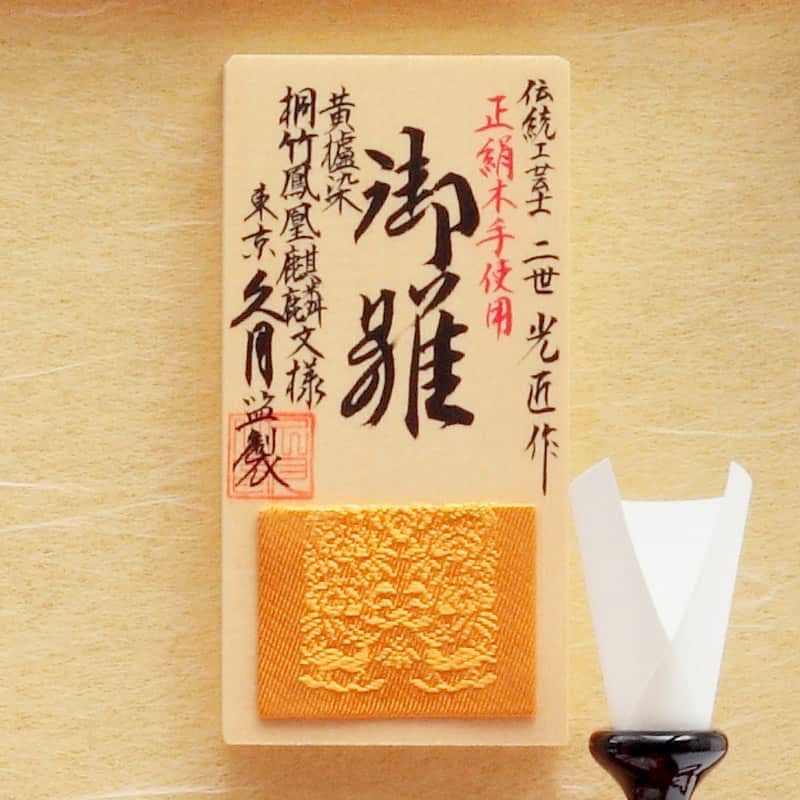 伝統工芸士 二世 光匠作
正絹木手使用
御雛
黄櫨染
桐竹鳳凰麒麟文様
東京久月監製